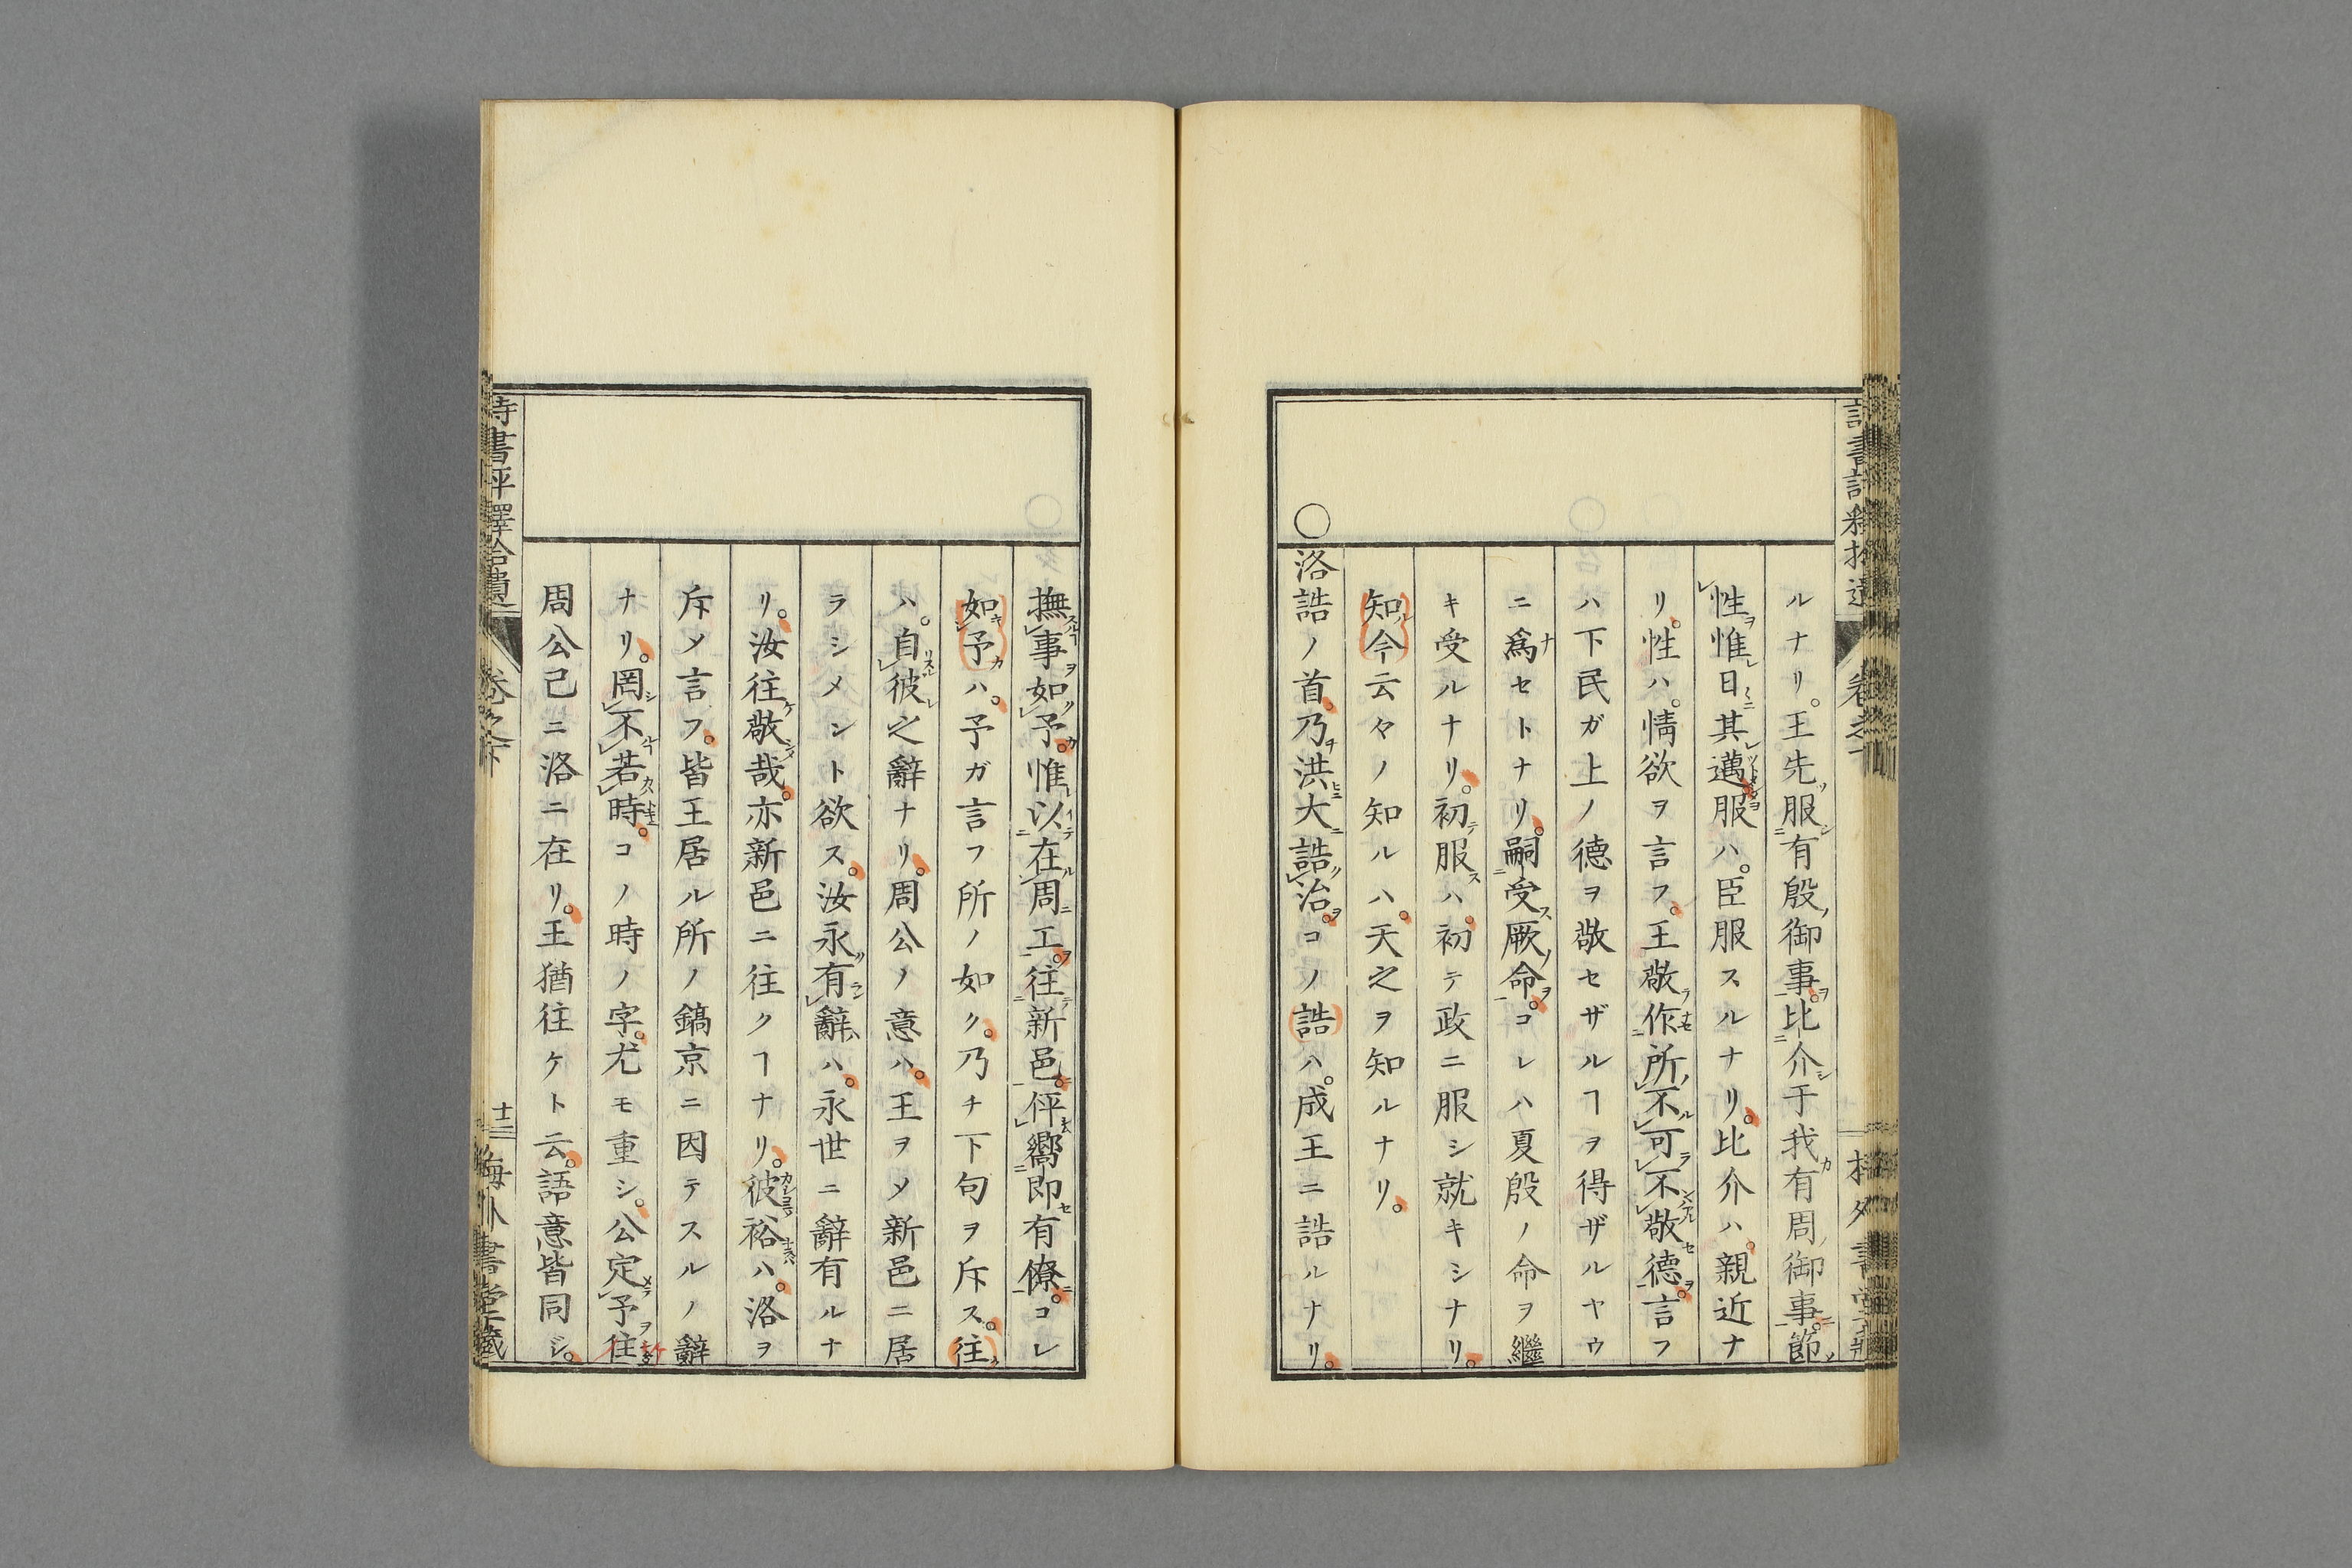 ルナリ。王先服有殷御事。比介于我有周御事。節
性惟日其邁服ハ。臣服スルナリ。比介ハ。親近ナ
リ。性ハ。情欲ヲ言フ。王敬作所不可不敬德。言フ
ハ下民ガ上ノ德ヲ敬セザルヿヲ得ザルヤウ
ニ爲セトナリ。嗣受厥命。コレハ夏殷ノ命ヲ繼
キ受ルナリ。初服ハ。初テ政ニ服シ就キシナリ。
知今云々ノ知ルハ。天之ヲ知ルナリ。
○洛誥ノ首。乃洪大誥治。コノ誥ハ。成王ニ誥ルナリ。
撫事如予。惟以在周工。往新邑。伻嚮即有僚。コレ
如予ハ。予ガ言フ所ノ如ク。乃チ下句ヲ斥ス。往
ハ。自彼之辭ナリ。周公ノ意ハ。王ヲメ新邑ニ居
ラシメント欲ス。汝永有辭ハ。永世ニ辭有ルナ
リ。汝往敬哉。亦新邑ニ往クヿナリ。彼裕ハ。洛ヲ
斥メ言フ。皆王居ル所ノ鎬京ニ因テスルノ辭
ナリ。罔不若時。コノ時ノ字。尤モ重シ。公定予往
周公己ニ洛ニ在リ。王猶往ケト云。語意皆同ジ。
詩書評釋拾遺 卷之下 十二 梅外書堂藏